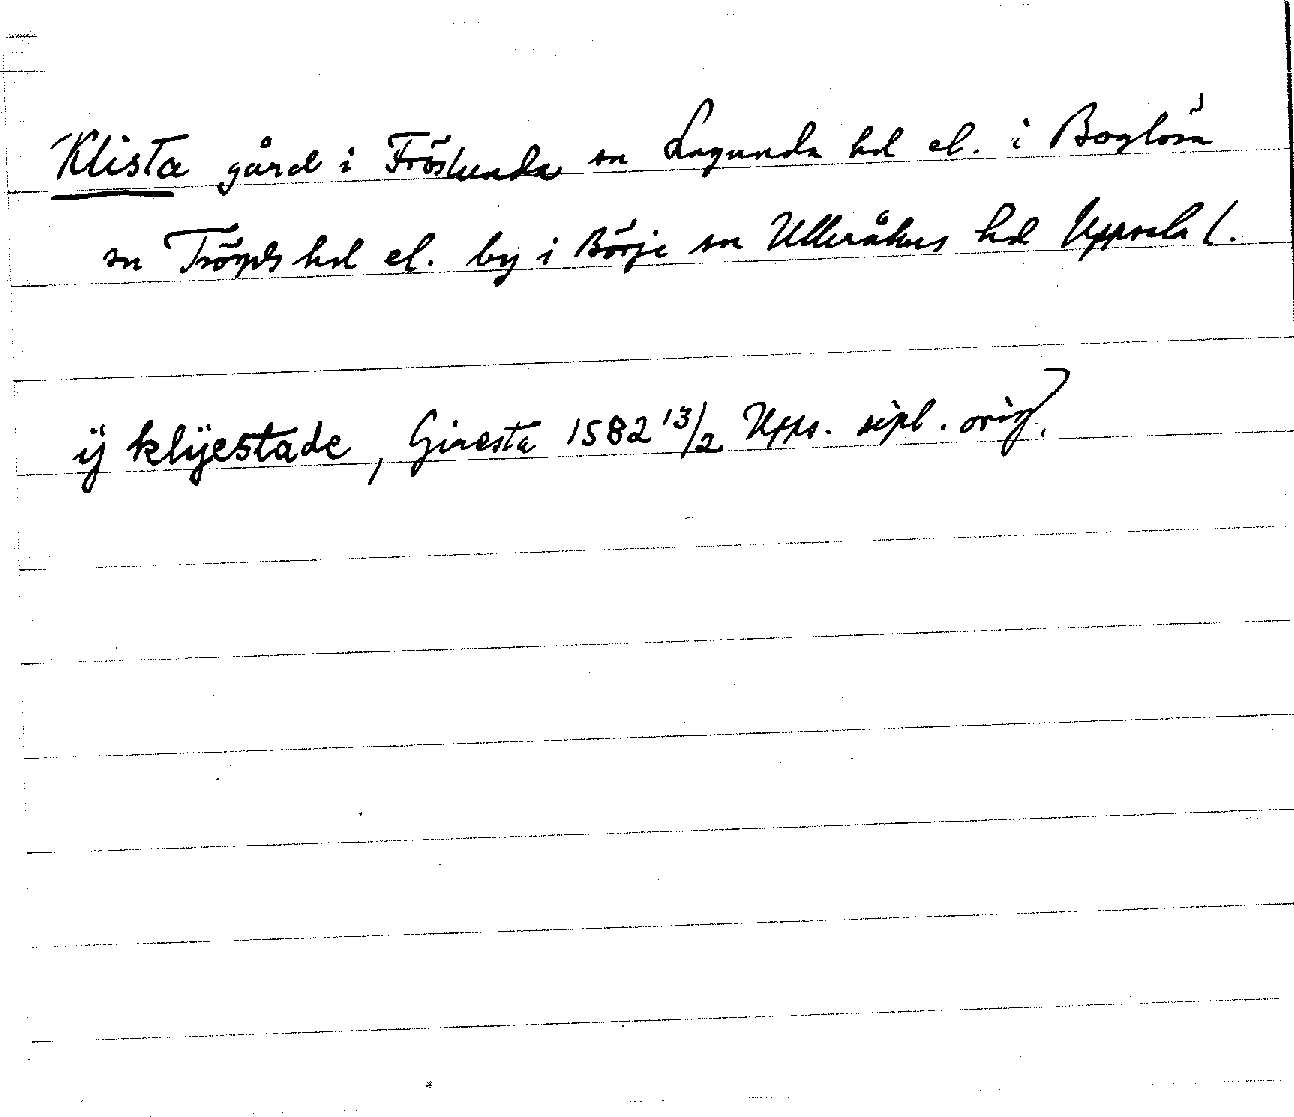 Klista gård i Fröslunda sn Lagunda hd el. i Boglösa
sn Trögds hd el. by i Börje sn Ulleråkers hd Uppsala l.
ÿ klÿestade, Ginesta 1582 13/2 Upps. dipl. orig.